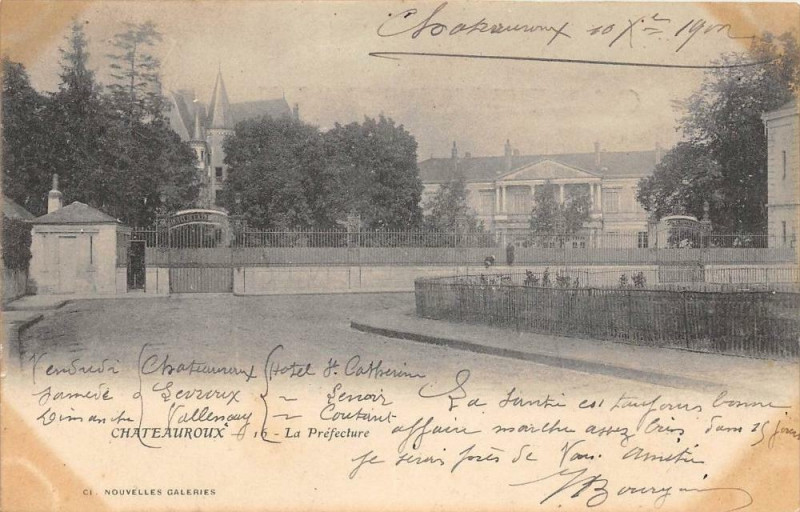 Chateauroux 10 Xbre 1902
Vendredi Chateauroux Hotel Ste Catherine
Samedi Levroux — Lenoir
Dimanche Vallençay — Coutant
La Santé est toujours bonne
affaire marche assez bien dans 15 jours
je serai près de Vous Amitiés
Bourgin
CHATEAUROUX 16 - La Préfecture
Cl. NOUVELLES GALERIES